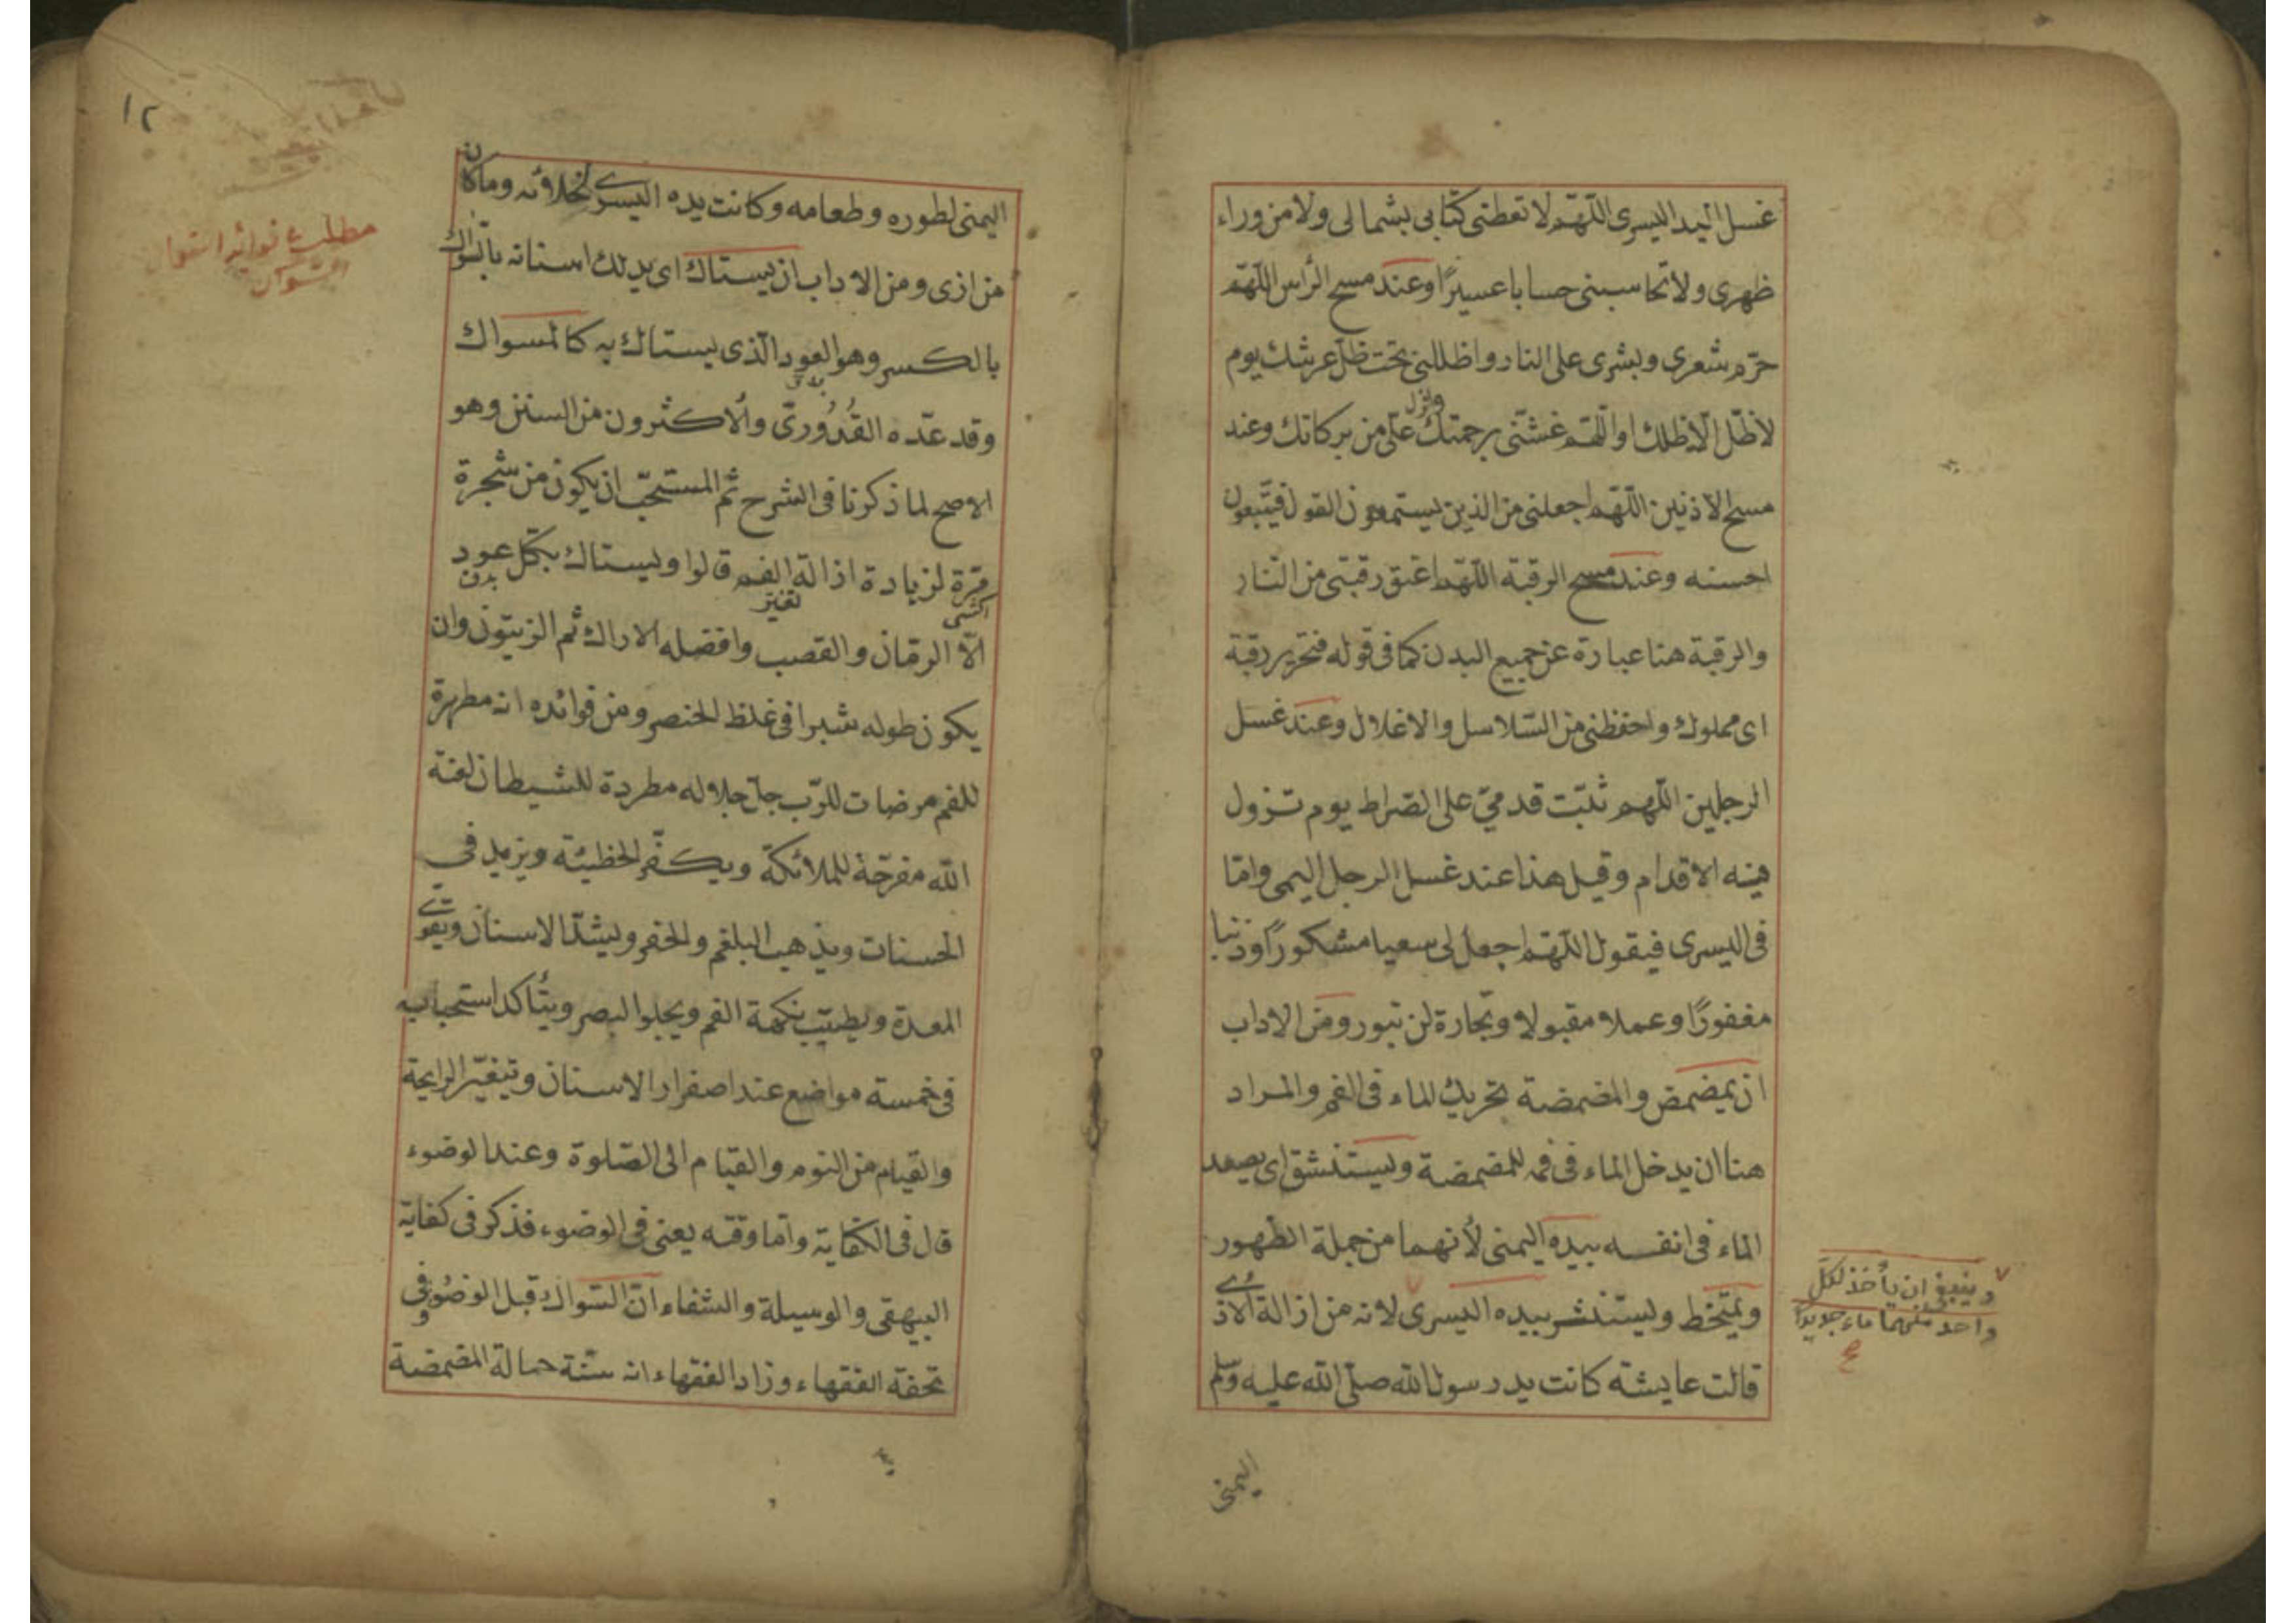 غسل اليد اليسرى اللّهمّ لا تعطنى كتابى بشمالى ولا من وراء
ظهرى ولا تحاسبنى حسابا عسيرًا وعند مسح الرأس اللّهمّ
حرّم شعرى وبشرى على النار واظللنى تحت ظلّ عرشك يوم
لا ظلّ الّا ظلك او اللّهمّ غشّنى برحمتك وانزل علىّ من بركاتك وعند
مسح الاذنين اللّهمّ اجعلنى من الذين يستمعون القول فيتّبعون
احسنه وعند مسح الرقبة اللّهمّ اعتق رقبتى من النّار
والرقبة هنا عبارة عن جميع البدن كما فى قوله فتحرير رقبة
اى مملوك واحفظنى من السّلاسل والاغلال وعند غسل
الرجلين اللّهم ثبّت قدمىّ على الصّراط يوم تزول
فيه الاقدام وقيل هذا عند غسل الرجل اليمنى وامّا
فى اليسرى فيقول اللّهمّ اجعل لى سعيا مشكورًا وذنبا
مغفورًا وعملا مقبولا وتجارة لن تبور ومن الاداب
ان يمضمض والمضمضة تحريك الماء فى الفم والمراد
هنا ان يدخل الماء فى فمه للمضمضة ويستنشق اى يصعد
الماء فى انفسه بيده اليمنى لأنهما من جملة الطّهور
ويمتخط ويستنشر بيده اليسرى لانه من ازالة الاذى
قالت عايشة كانت يد رسول الله صلّى الله عليه وسلم
اليمنى
وينبغى ان يأخذ لكلّ
واحد منهما ماء جديدًا
صح
١٢
مطلب فوائد استعمال
السواك
اليمنى لطوره وطعامه وكانت يده اليسرى لخلائه وما كان
من اذى ومن الاداب ان يستاك اى يدلك اسنانه بالسّواك
بالكسر وهو العود الّذى يستاك به كالمسواك
وقد عدّه القُدُورىّ والأكثرون من السنن وهو
الاصح لما ذكرنا فى الشرح ثم المستحبّ ان يكون من شجرة
مرّة لزيادة ازالة تغير الفم قالوا ويستاك بكل عود
الّا الرمّان والقصب وافضله الاراك ثم الزيتون وان
يكون طوله شبرا فى غلظ الخنصر ومن فوائده انه مطهرة
للفم مرضات للرّب جلّ جلاله مطردة للشيطان لعنة
الله مفرّحة للملائكة ويكفّر الخطيئة ويزيد فى
الحسنات ويذهب البلغم والحفر ويشدّ الاسنان ويقوّى
المعدة ويطيّب نكهة الفم ويجلو البصر ويتأكد استحبابه
فى خمسة مواضع عند اصفرار الاسنان وتغيّر الرايحة
والقيام من النوم والقيام الى الصّلوة وعند الوضوء
قال فى الكفاية وامّا وقته يعنى فى الوضوء فذكر فى كفاية
البيهقى والوسيلة والشفاء انّ السّواك قبل الوضوء وفى
تحفة الفقهاء وزاد الفقهاء انه سنّة حالة المضمضة